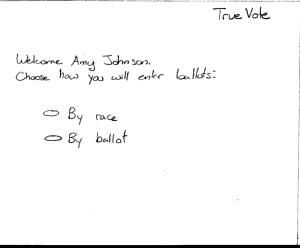 True Vote
Welcome Amy Johnson.
Choose how you will enter ballots:
By race
By ballot